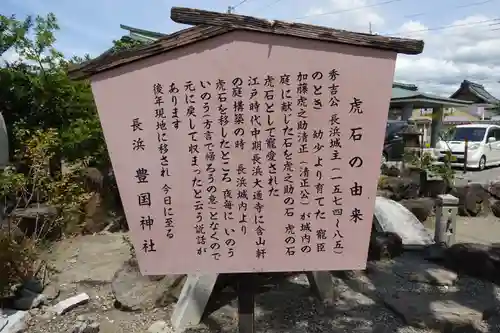 虎石の由来
秀吉公 長浜城主(一五七四～八五)
のとき 幼少より育てた 寵臣
加藤虎之助清正(清正公)が城内の
庭に献じた石を虎之助の石 虎の石
虎石として寵愛された
江戸時代中期長浜大通寺に含山軒
の庭 構築の時 長浜城内より
石を移したところ 夜毎に いのう
いのう(方言で帰ろうの意)となくので
元に戻して収まったと云う説話が
あります
後年現地に移され 今日に至る
長浜 豊国神社